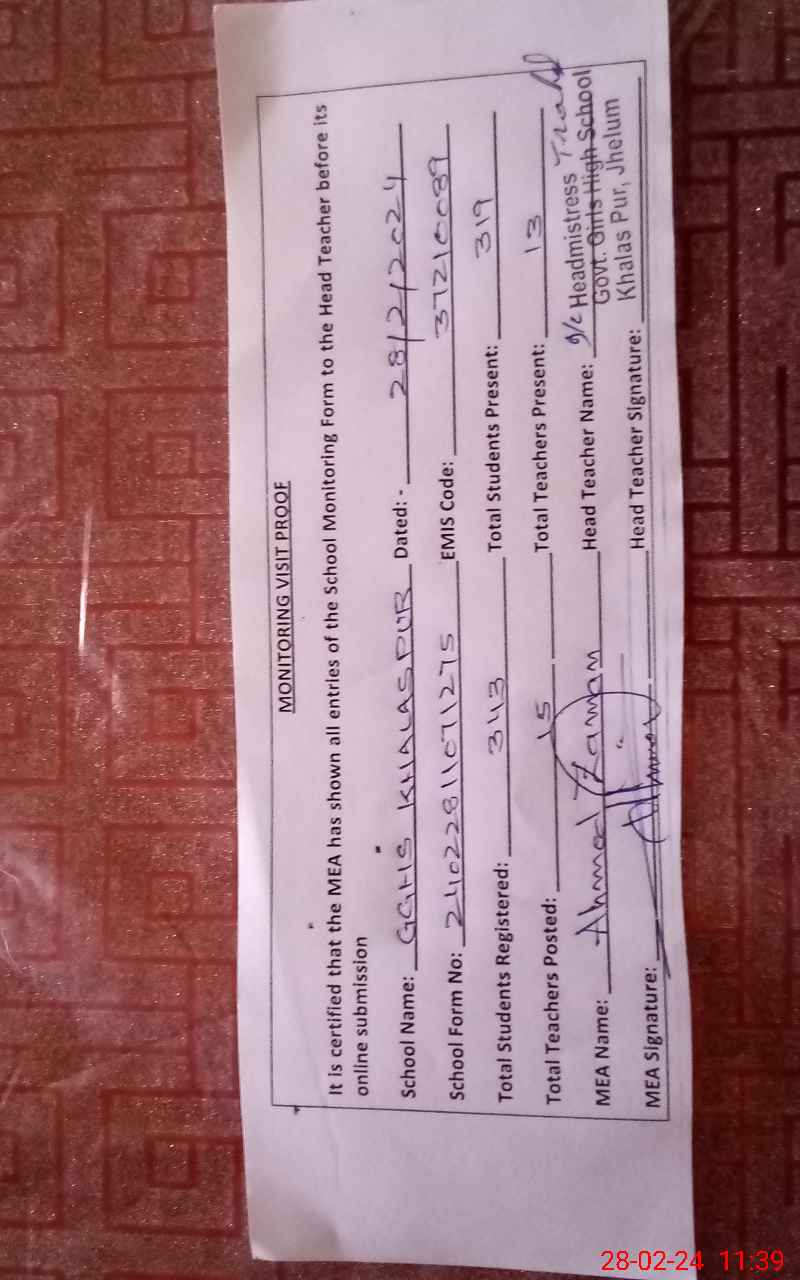 MONITORING VISIT PROOF
It is certified that the MEA has shown all entries of the School Monitoring Form to the Head Teacher before its
online submission
School Name: GGHS KHALASPUR Dated: - 28/2/2024
School Form No: 2402281107 1275 EMIS Code: 37210089
Total Students Registered: 343 Total Students Present: 319
Total Teachers Posted: 15 Total Teachers Present: 13
MEA Name: Ahmad Zaman Head Teacher Name: I/C Headmistress
Govt. Girls High School
Khalas Pur, Jhelum
MEA Signature: Head Teacher Signature:
28-02-24 11:39